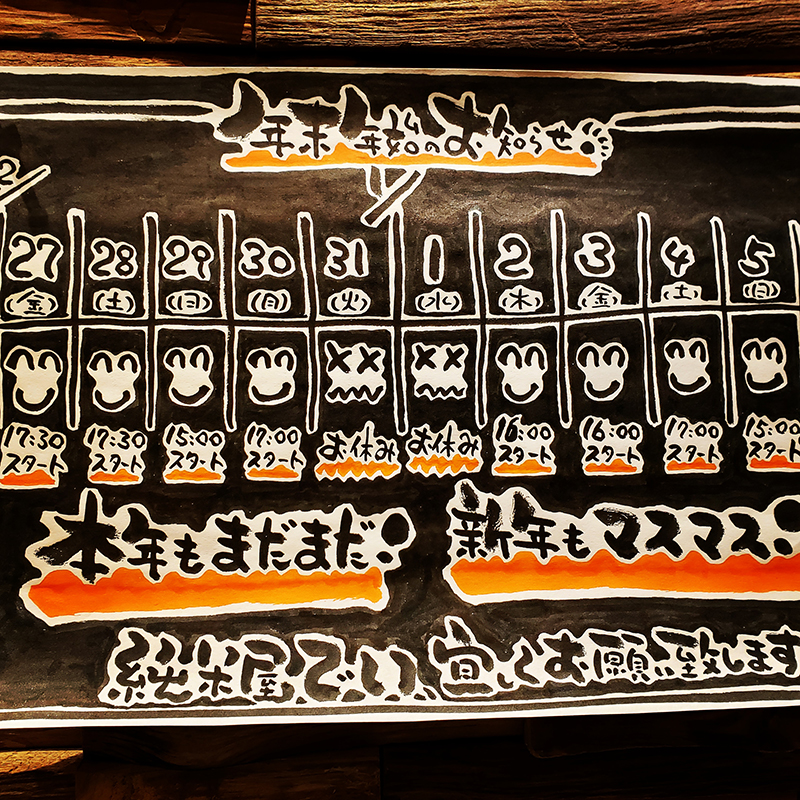 年末年始のお知らせ!
2/
1/
27 28 29 30 31 1 2 3 4 5
(金) (土) (日) (月) (火) (水) (木) (金) (土) (日)
17:30 17:30 15:00 17:00 お休み お休み 16:00 16:00 17:00 15:00
スタート スタート スタート スタート スタート スタート スタート スタート
本年もまだまだ! 新年もマスマス!
純米屋でい、宜しくお願い致します